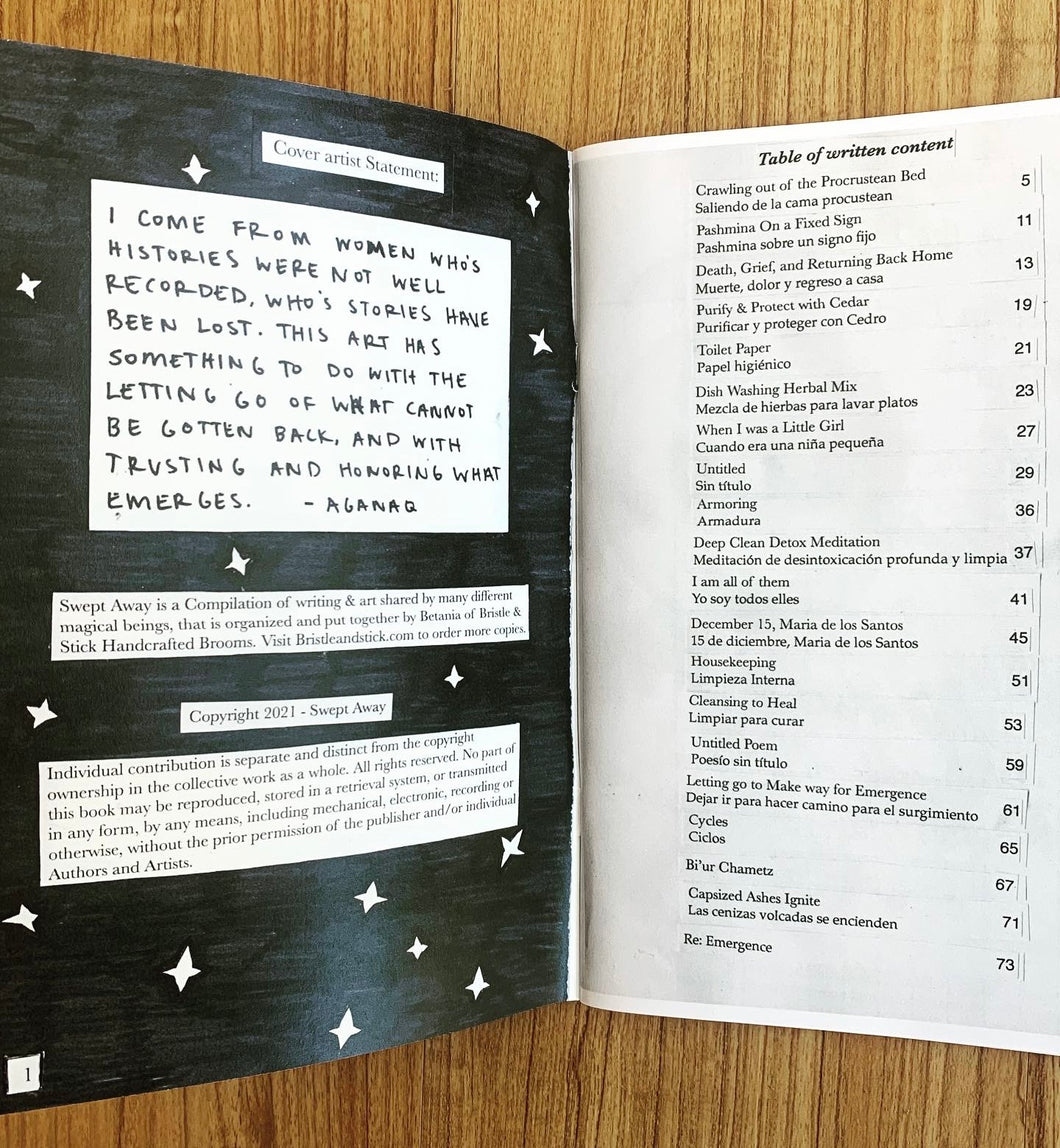 Cover artist Statement:
I COME FROM WOMEN WHO'S
HISTORIES WERE NOT WELL
RECORDED, WHO'S STORIES HAVE
BEEN LOST. THIS ART HAS
SOMETHING TO DO WITH THE
LETTING GO OF WHAT CANNOT
BE GOTTEN BACK, AND WITH
TRUSTING AND HONORING WHAT
EMERGES. - AGANAQ
Swept Away is a Compilation of writing & art shared by many different
magical beings, that is organized and put together by Betania of Bristle &
Stick Handcrafted Brooms. Visit Bristleandstick.com to order more copies.
Copyright 2021 - Swept Away
Individual contribution is separate and distinct from the copyright
ownership in the collective work as a whole. All rights reserved. No part of
this book may be reproduced, stored in a retrieval system, or transmitted
in any form, by any means, including mechanical, electronic, recording or
otherwise, without the prior permission of the publisher and/or individual
Authors and Artists.
1
Table of written content
Crawling out of the Procrustean Bed 5
Saliendo de la cama procustean
Pashmina On a Fixed Sign 11
Pashmina sobre un signo fijo
Death, Grief, and Returning Back Home 13
Muerte, dolor y regreso a casa
Purify & Protect with Cedar 19
Purificar y proteger con Cedro
Toilet Paper 21
Papel higiénico
Dish Washing Herbal Mix 23
Mezcla de hierbas para lavar platos
When I was a Little Girl 27
Cuando era una niña pequeña
Untitled 29
Sin título
Armoring 36
Armadura
Deep Clean Detox Meditation
Meditación de desintoxicación profunda y limpia 37
I am all of them
Yo soy todos elles 41
December 15, Maria de los Santos
15 de diciembre, Maria de los Santos 45
Housekeeping
Limpieza Interna 51
Cleansing to Heal
Limpiar para curar 53
Untitled Poem
Poesío sin título 59
Letting go to Make way for Emergence
Dejar ir para hacer camino para el surgimiento 61
Cycles
Ciclos 65
Bi'ur Chametz 67
Capsized Ashes Ignite
Las cenizas volcadas se encienden 71
Re: Emergence 73